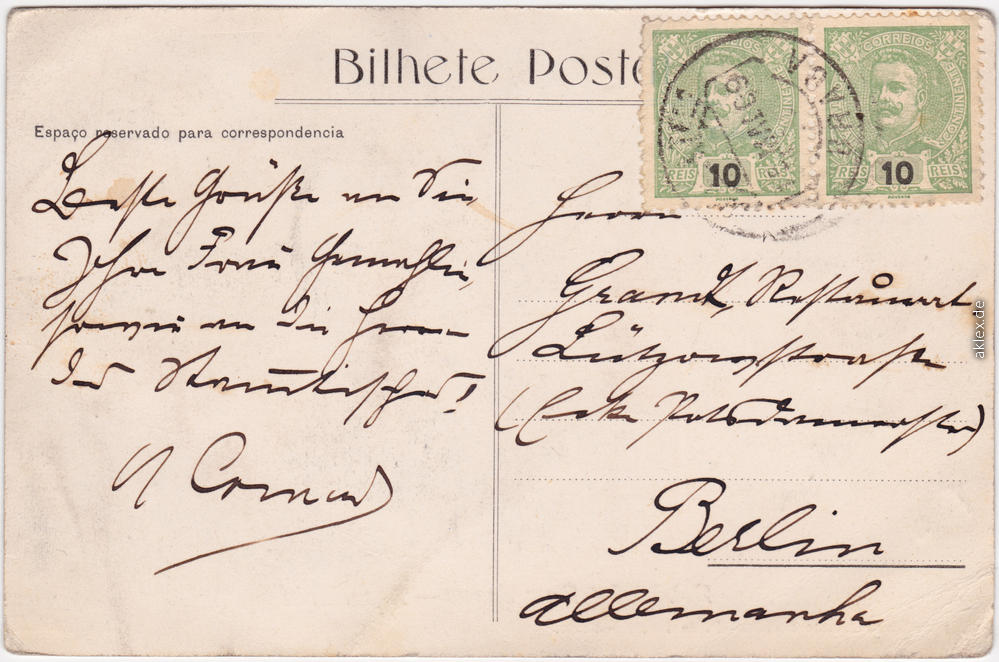 Bilhete Post
Espaço reservado para correspondencia
Beste Grüße an Sie
Ihre Frau Gemahlin,
sowie an die Herrn
des Stammtisches!
Conrad
Herrn
Grand, Restaurant
Lützowstrasse
(Ecke Potsdamerstr)
Berlin
Allemanha
CORREIOS
10
REIS REIS
CORREIOS
CONTINENTE
10
REIS REIS
aklex.de